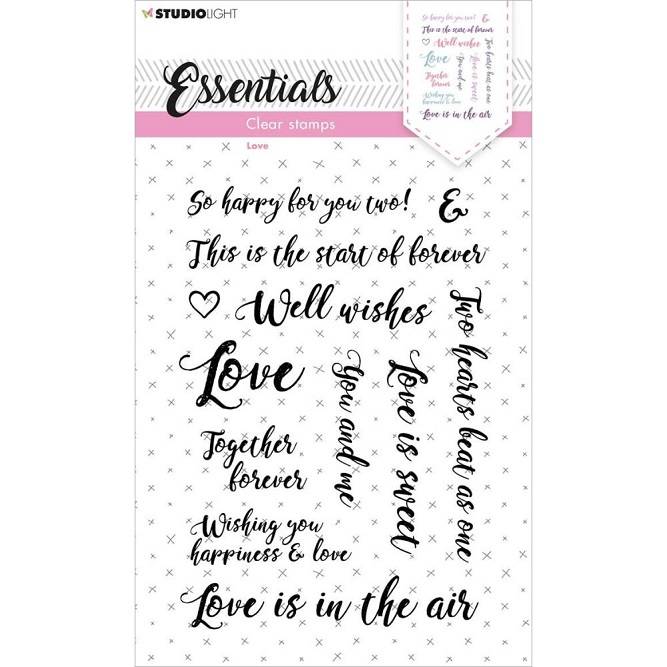 STUDIOLIGHT
Essentials
Clear stamps
Love
So happy for you two!
&
This is the start of forever
Well wishes
Love
Together
forever
Wishing you
happiness & love
You and me
Love is sweet
Two hearts beat as one
Love is in the air
So happy for you two!
&
This is the start of forever
Well wishes
Love
Together
forever
Wishing you
happiness & love
You and me
Love is sweet
Two hearts beat as one
Love is in the air